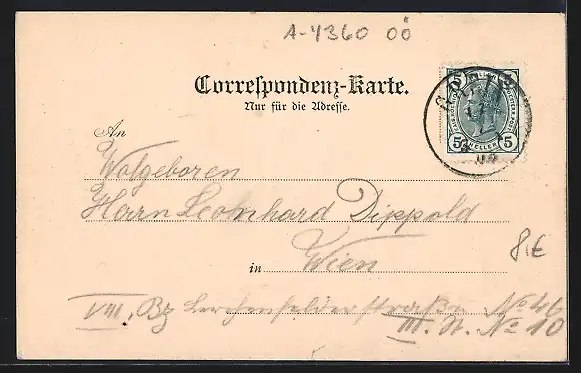 A-4360 OÖ
Correspondenz-Karte.
Nur für die Adresse.
5 5
5 HELLER 5
An
Wolgeboren
Herrn Leonhard Dippold
in Wien
VIII, Bz Lerchenfelderstraße No 46
III. St. No 10
8,€